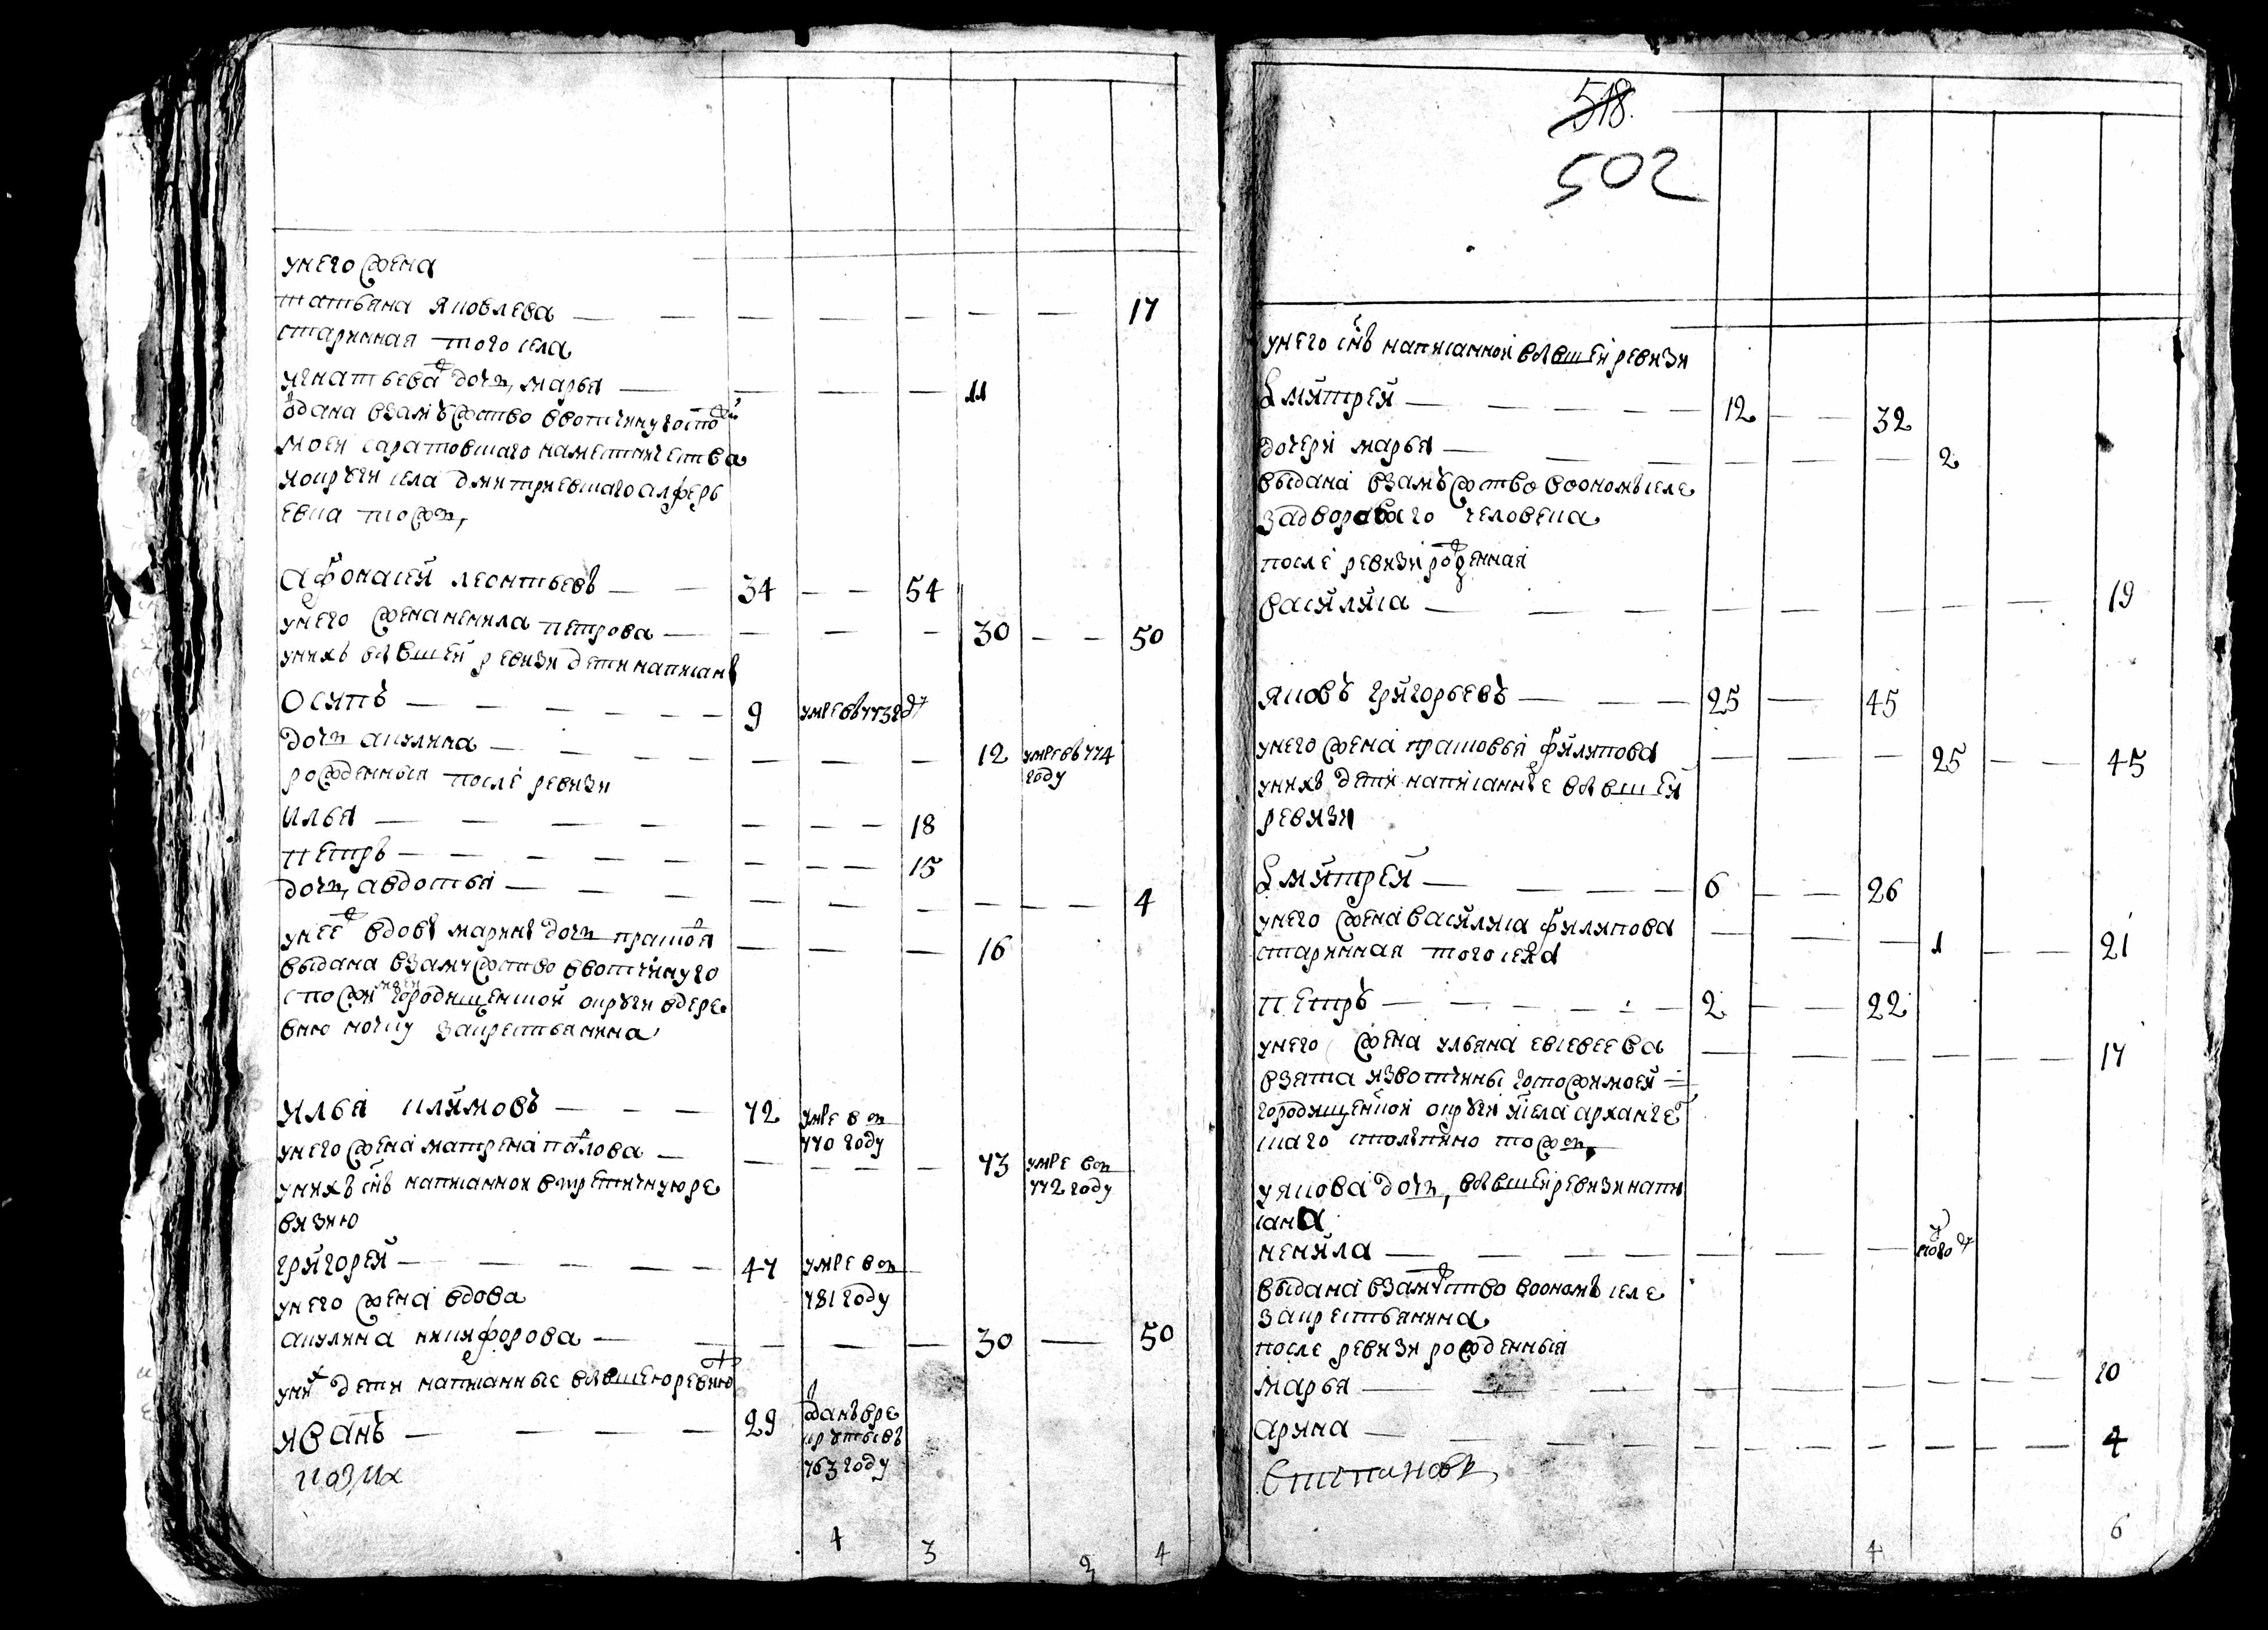 у него жена
татьяна яковлева — — — — — — — 17
старинная того села
игнатьева дочь марья — — — — 11
одана взамъжствоввотчину госпожи
моеи саратовскаго наместничества
иокруги села дмитриевскаго алферь
евка тожъ,
афонасей леонтьевъ — — 34 — — 54
у него жена ненила петрова — — — — 30 — — 50
унихъ вплвшей ревизи дети написанъ
осипъ — — — — — — 9 умре въ 773 году
дочь акулина — — — — — — 12 умре въ 774 году
рожденныя после ревизи
илья — — — — — — — 18
петръ — — — — — — — — 15
дочь, авдотья — — — — — — — — 4
унее вдовы марины дочь прасковья — — — 16
выдана взамужство ввотчину го
спожи моеи городищенской округи вдере
вню ночку закрестьянина
илья климовъ — — — 72 умре въ 770 году
у него жена матрена павлова — — — — — 73 умре въ 772 году
унихъ сынъ написанной втретичную ре
визию
григорей — — — — — 47 умре въ
у него жена вдова 781 году
акулина никифорова — — — — — 30 — 50
уних дети написанные вплвшею ревизию
иванъ — — — — 29 одан въ ре
круты въ
763 году
4 3 3 4
518
502
у него сынъ написанной вплвшей ревизи
дмитрей — — — — — — 12 — — 32
дочери марья — — — — — — — 2
выдана взамъжство воономъ селе
задворового человека
после ревизи рожденная
василиса — — — — — — — — — 19
яковъ григорьевъ — — — 25 — 45
у него жена прасковья филипова — — — 25 — — 45
унихъ дети написанные вплвшей
ревизи
дмитрей — — — — 6 — — 26
у него жена василиса филипова — — — 1 — — 21
старинная того села
петръ — — — — — — 2 — — 22
у него жена ульяна евсевеева — — — — — — 17
взята извотчины госпожи моей
городищенской округи исела архангел
скаго столыпино тожъ,
у якова дочь, вплвшей ревизи напи
сана
ненила — — — — — — — — полгоду
выдана взамужство воономъ селе
закрестьянина
после ревизи рожденныя
марья — — — — — — — — 10
арина — — — — — — — — — — 4
Степановъ
4 6